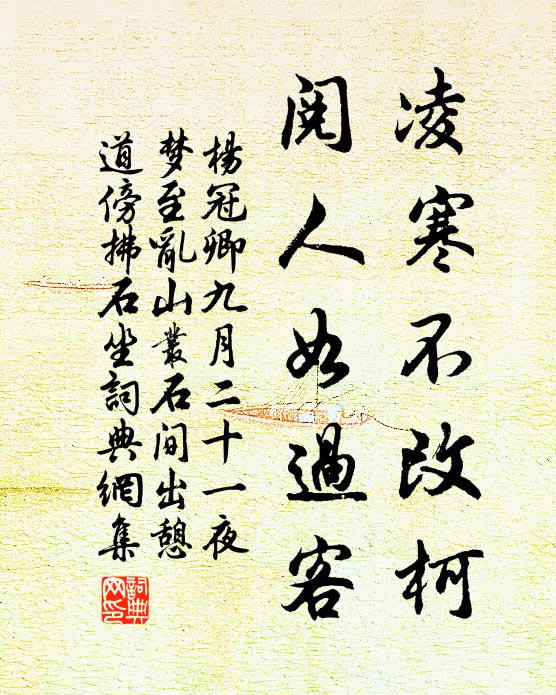 凌寒不改柯
閱人如過客
楊冠卿九月二十一夜
梦至亂山叢石间出憩
道傍拂石坐詞典網集
詞典
网印